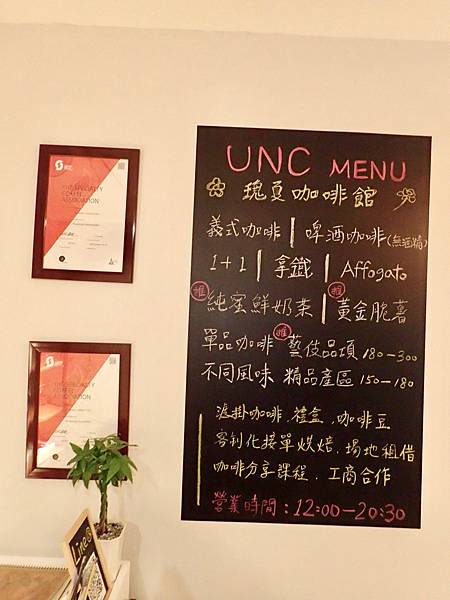 THE SPECIALTY
COFFEE
ASSOCIATION
THE SPECIALTY
COFFEE
ASSOCIATION
UNC MENU
瑰夏咖啡館
義式咖啡 | 啤酒咖啡(無酒精)
1+1 | 拿鐵 | Affogato
推 純蜜鮮奶茶 | 推 黃金脆薯
單品咖啡 推 藝伎品項 180-300
不同風味 精品產區 150-180
濾掛咖啡.禮盒.咖啡豆
客制化接單烘焙.場地租借
咖啡分享課程.工商合作
營業時間:12:00-20:30